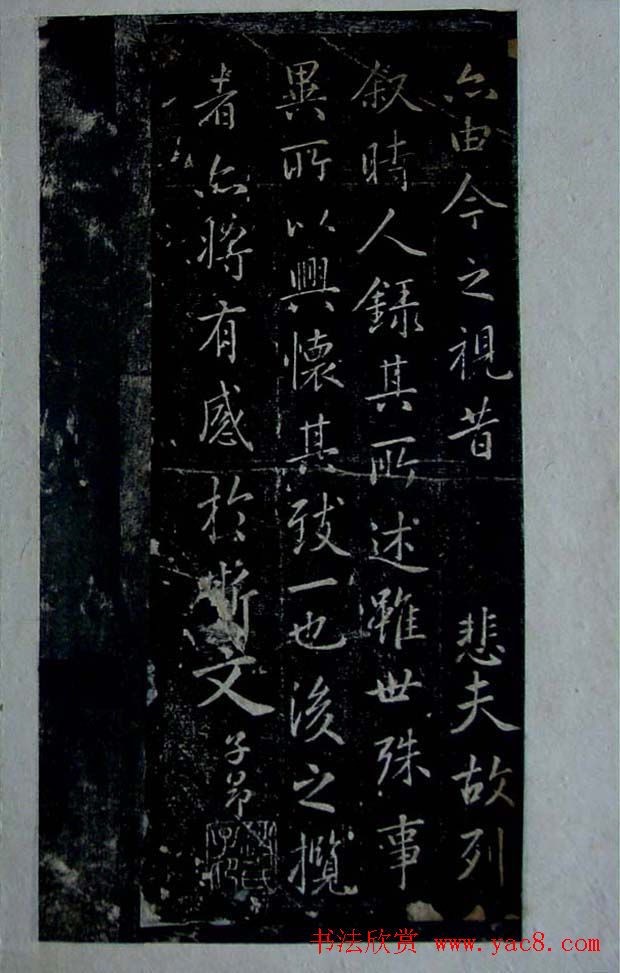 亦由今之視昔 悲夫故列
叙時人錄其所述雖世殊事
異所以興懷其致一也後之攬
者亦將有感於斯文 子昂
书法欣赏 www.yac8.com